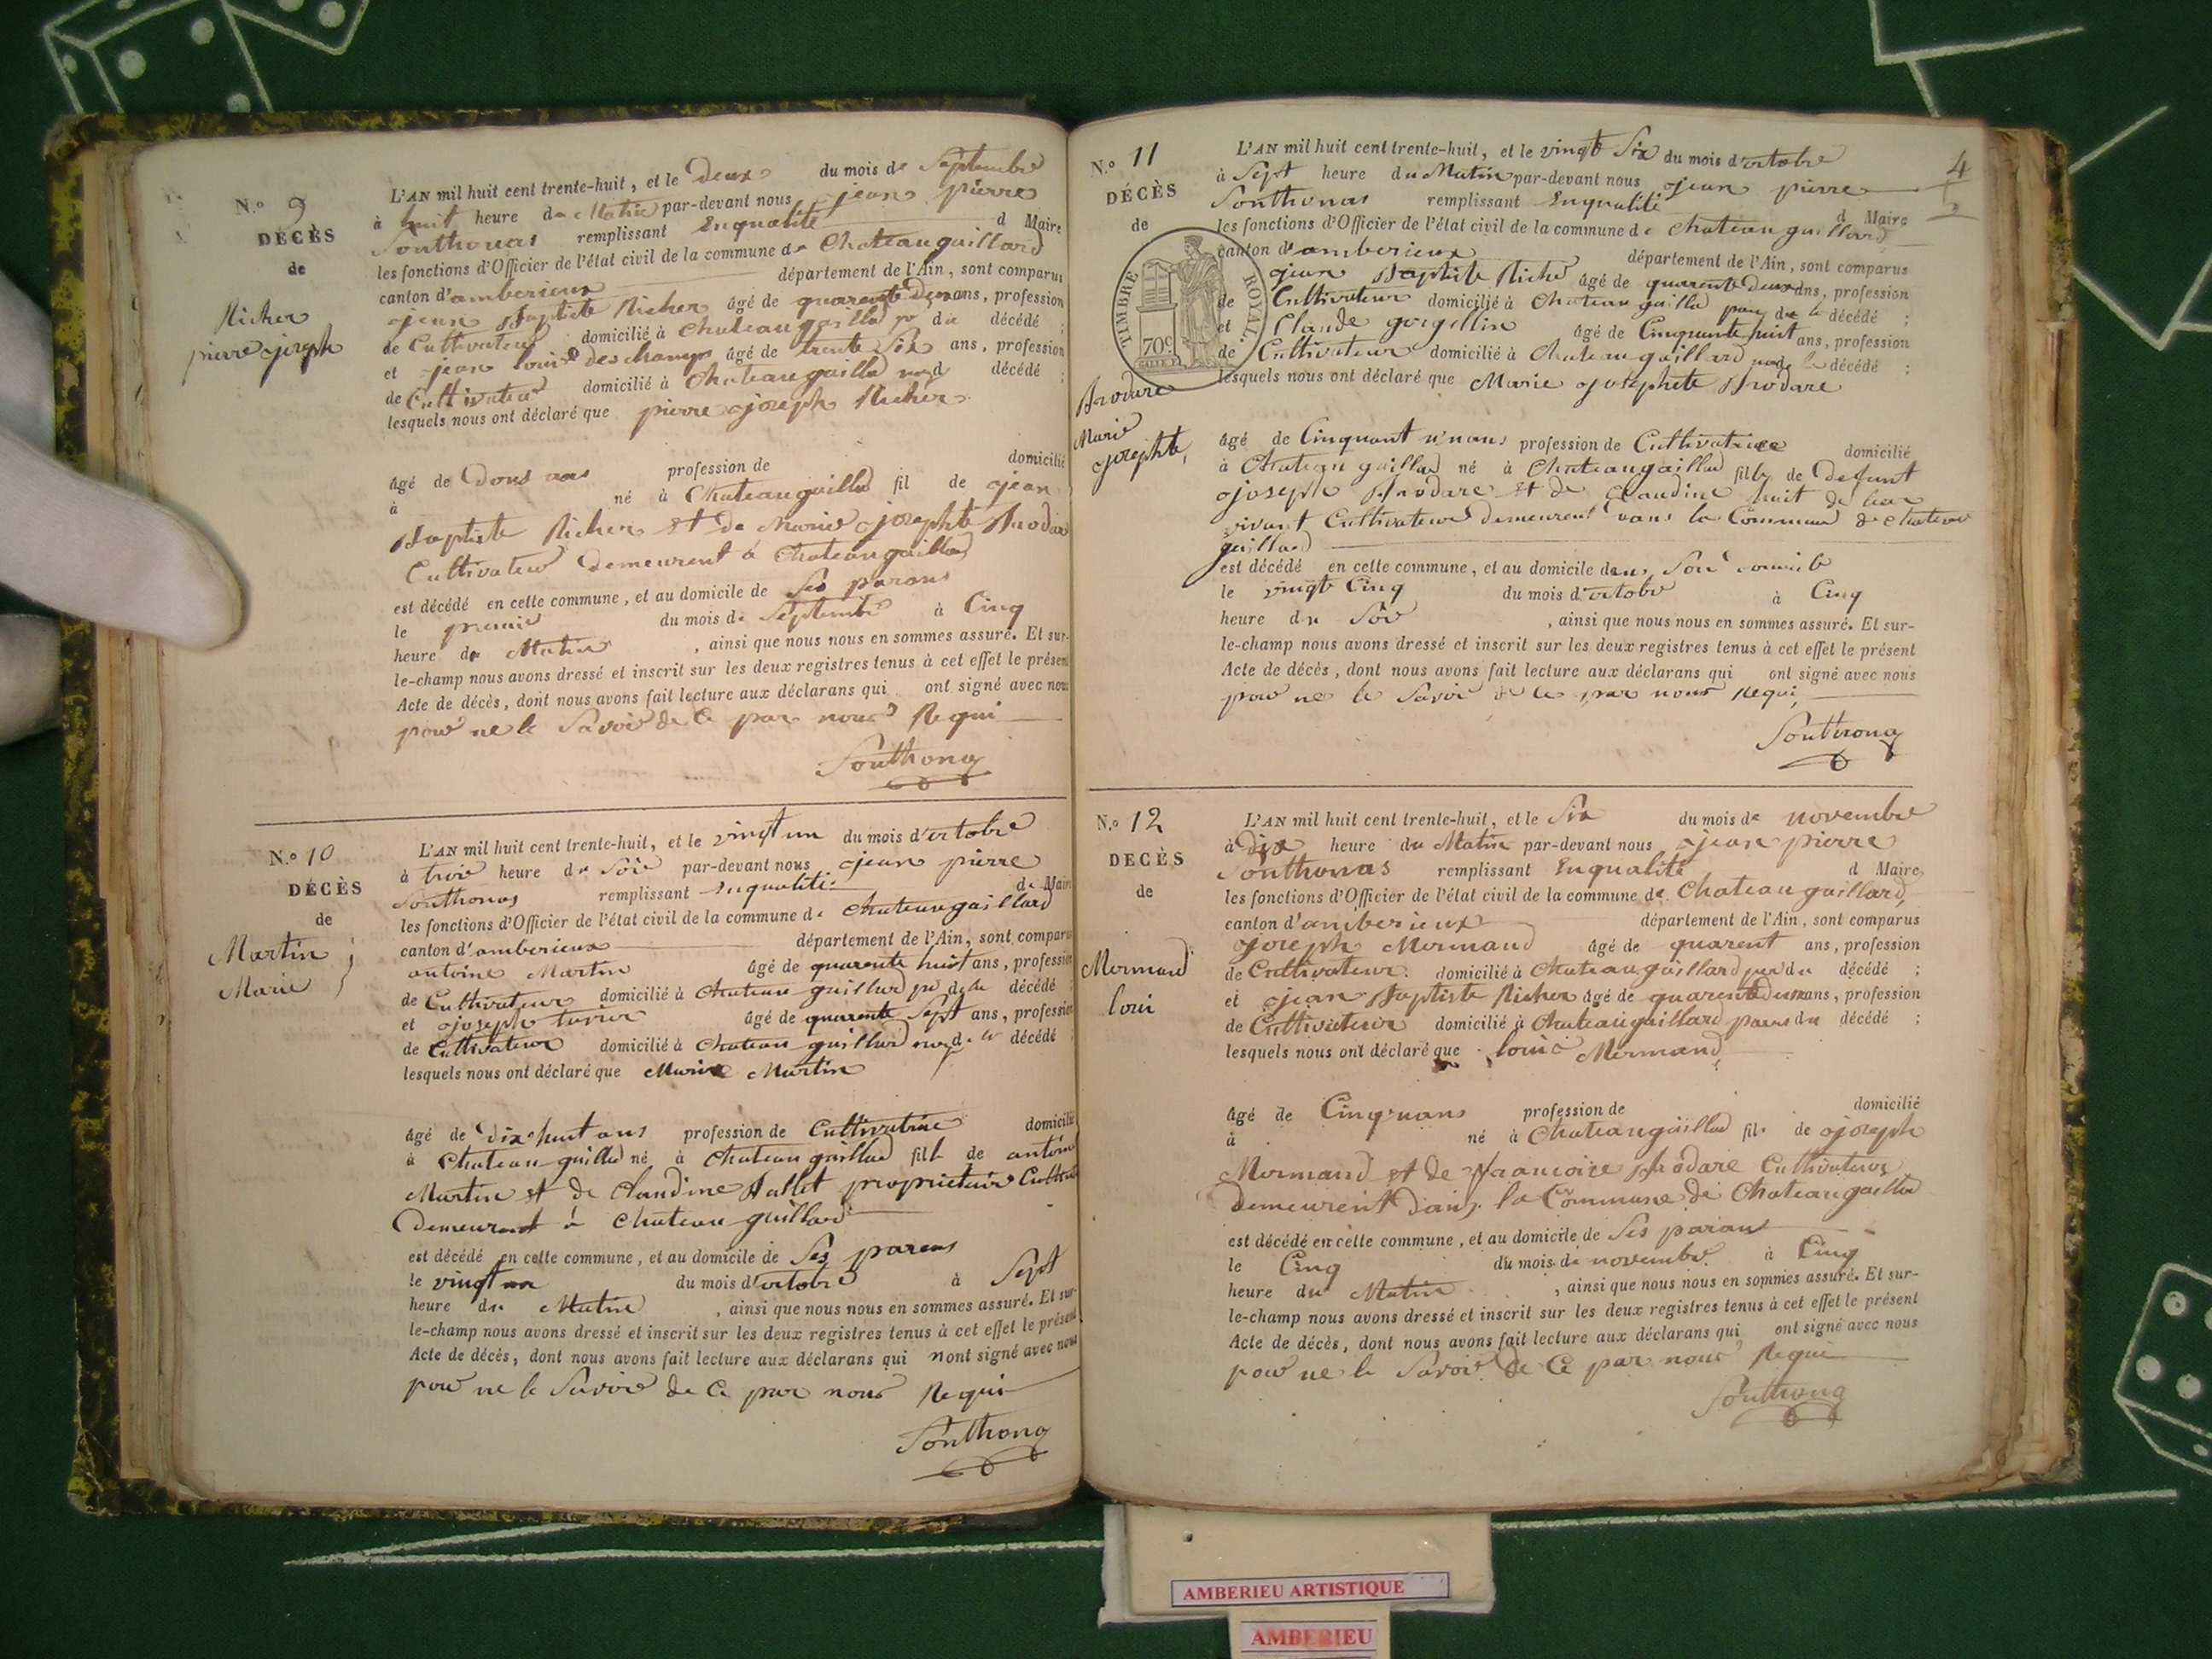 N.o 9
DÉCÈS
de
Richer
pierre joseph
L'AN mil huit cent trente-huit, et le Deux du mois de Septembre
à huit heure du Matin par-devant nous jean pierre
Southonas remplissant Enqualité d Maire
les fonctions d'Officier de l'état civil de la commune de Chateaugaillard
canton d'amberieux département de l'Ain, sont comparus
jean Baptiste Richer âgé de quarente Deux ans, profession
de Cultivateur domicilié à Chateaugailla du décédé ;
et jean loui Deschamps âgé de trente Six ans, profession
de Cultivateu domicilié à Chateaugailla décédé ;
lesquels nous ont déclaré que pierre joseph Richer
âgé de Dous ans profession de domicilié
à né à Chateaugaillad fil de jean
Baptiste Richer et de Marie josephte Brodare
Cultivateur Demeurent à Chateaugaillad
est décédé en cette commune, et au domicile de Ses parans
le premie du mois de Septembre à Cinq
heure de Matin , ainsi que nous nous en sommes assuré. Et sur-
le-champ nous avons dressé et inscrit sur les deux registres tenus à cet effet le présent
Acte de décès, dont nous avons fait lecture aux déclarans qui ont signé avec nous
pour ne le Savoir de Ce par nous Requi
Southonas
N.o 10
DÉCÈS
de
Martin
Marie
L'AN mil huit cent trente-huit, et le vingt un du mois d'octobre
à troi heure du Soir par-devant nous jean pierre
Southonas remplissant Enqualité de Maire
les fonctions d'Officier de l'état civil de la commune de Chateaugaillard
canton d'amberieux département de l'Ain, sont comparu
antoine Martin âgé de quarente huit ans, profession
de Cultivateur domicilié à Chateau gaillard décédé ;
et joseph âgé de quarente Sept ans, profession
de Cultivateur domicilié à Chateau gaillard décédé
lesquels nous ont déclaré que Marie Martin
âgé de Dix huit ans profession de Cultivatrice domicilié
à Chateau gaillad né à Chateau gaillad fill de antoine
Martin et de Claudine Ballet proprietaire Cultiva
Demeurant à Chateau gaillard
est décédé en cette commune, et au domicile de Ses parens
le vingt un du mois d'octobre à Sept
heure du Matin , ainsi que nous nous en sommes assuré. Et sur-
le-champ nous avons dressé et inscrit sur les deux registres tenus à cet effet le présent
Acte de décès, dont nous avons fait lecture aux déclarans qui nont signé avec nous
pour ne le Savoir de Ce par nous Requi
Southonas
4
N.o 11
DÉCÈS
de
TIMBRE ROYAL
70c
Brodare
Marie
josephte,
L'AN mil huit cent trente-huit, et le vingt Six du mois d'octobre
à Sept heure du Matin par-devant nous jean pierre
Southonas remplissant Enqualité d Maire
les fonctions d'Officier de l'état civil de la commune de Chateau gaillard
canton d'amberieux département de l'Ain, sont comparus
jean Baptiste Riche âgé de quarente Deux ans, profession
de Cultivateur domicilié à Chateau gailla décédé ;
et Claude âgé de Cinquente huit ans, profession
de Cultivateur domicilié à Chateaugaillard décédé ;
lesquels nous ont déclaré que Marie josephte Brodare
âgé de Cinquant profession de Cultivatrice domicilié
à Chateau gaillad né à Chateaugaillad fille de Defunt
joseph Brodare et de Claudine huit de leur
vivant Cultivateur demeurent dans la Commune de Chateau
gaillard
est décédé en cette commune, et au domicile dans Son
le vingt Cinq du mois d'octobr à Cinq
heure du Soir , ainsi que nous nous en sommes assuré. Et sur-
le-champ nous avons dressé et inscrit sur les deux registres tenus à cet effet le présent
Acte de décès, dont nous avons fait lecture aux déclarans qui ont signé avec nous
pour ne le Savoir de Ce par nous Requi,
Southonas
N.o 12
DECÈS
de
Mermand
loui
L'AN mil huit cent trente-huit, et le Six du mois de novembre
à Dix heure du Matin par-devant nous jean pierre
Southonas remplissant Enqualité d Maire
les fonctions d'Officier de l'état civil de la commune de Chateau gaillard,
canton d'amberieux département de l'Ain, sont comparus
joseph Mermand âgé de quarent ans, profession
de Cultivateur domicilié à Chateaugaillard per du décédé ;
et jean Baptiste Richer âgé de quarente Deux ans, profession
de Cultivateur domicilié à Chateaugaillard du décédé ;
lesquels nous ont déclaré que loui Mermand,
âgé de Cinq'nans profession de domicilié
à né à Chateaugaillad fils de joseph
Mermand et de francoise Brodare Cultivateur
Demeurent Dans la Commune de Chateaugaillad
est décédé en cette commune, et au domicile de Ses parans
le Cinq du mois de novembr à Cinq
heure du Matin , ainsi que nous nous en sommes assuré. Et sur-
le-champ nous avons dressé et inscrit sur les deux registres tenus à cet effet le présent
Acte de décès, dont nous avons fait lecture aux déclarans qui ont signé avec nous
pour ne le Savoir De Ce par nous Requi
Southonas
AMBERIEU ARTISTIQUE
AMBERIEU